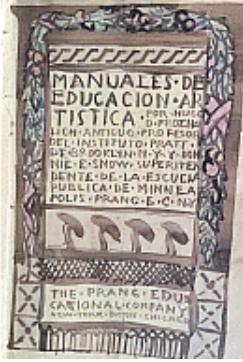 MANUALES·DE
EDUCACION·AR
TISTICA·POR·HUGO
LICH·ANTIGUO·PROFESOR
DEL·INSTITUTO·PRATT·
DE·BROOKLYN·N·Y·Y·BON
NIE·E·SNOW·SUPERITEN
DENTE·DE·LA·ESCUELA
PUBLICA·DE·MINNEA
POLIS·PRANG·E·C·N·Y
THE·PRANG·EDU
CATIONAL·COMPANY
NEW·YORK·BOSTON·CHICAGO